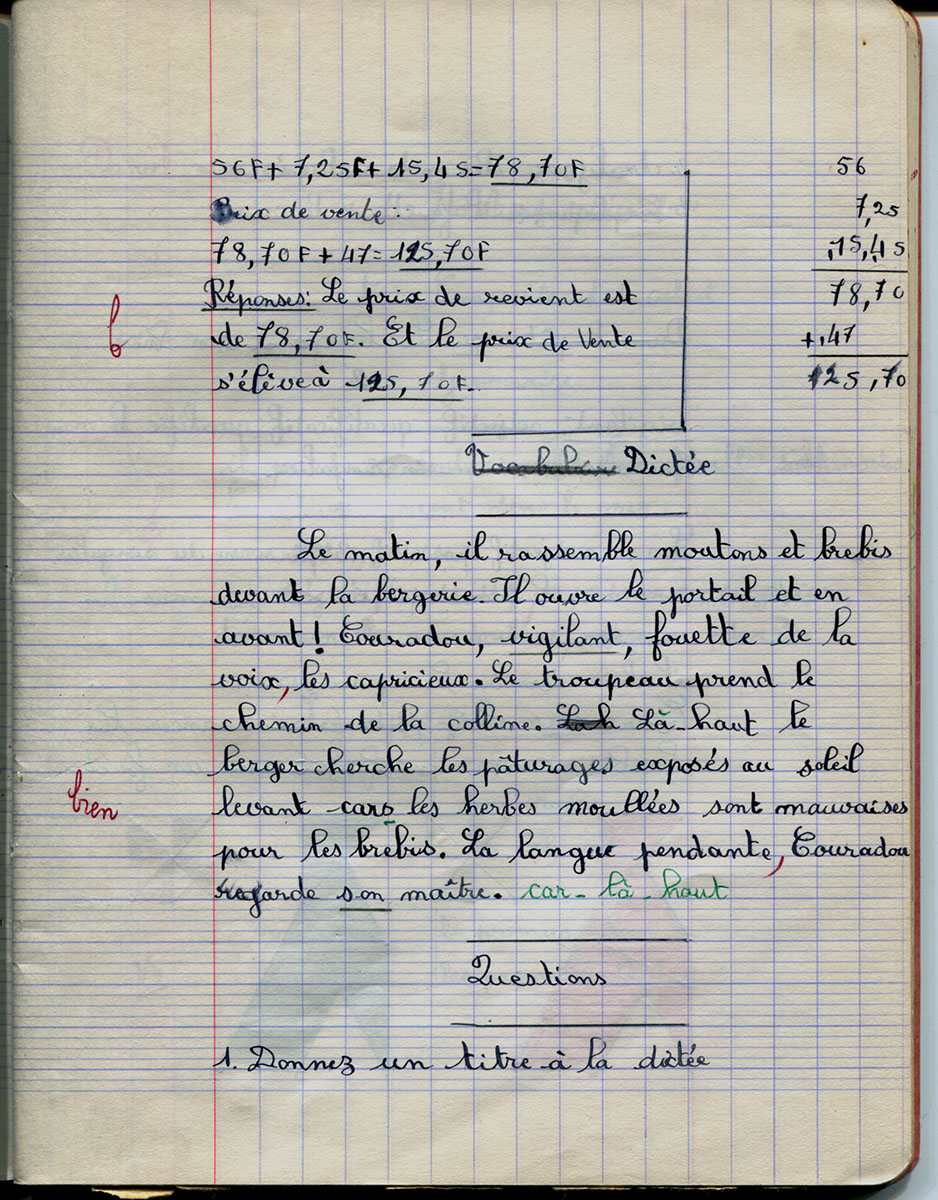 56F + 7,25F + 15,45 = 78,70F
Prix de vente :
78,70F + 47 = 125,70F
Réponses: Le prix de revient est
de 78,70F. Et le prix de Vente
s'élève à 125,70F.
b
56
7,25
15,45
78,70
+ 47
125,70
Vocabulaire Dictée
Le matin, il rassemble moutons et brebis
devant la bergerie. Il ouvre le portail et en
avant ! Couradou, vigilant, fouette de la
voix, les capricieux. Le troupeau prend le
chemin de la colline. Là-haut le
berger cherche les pâturages exposés au soleil
bien
levant cars les herbes moullées sont mauvaises
pour les brebis. La langue pendante, Couradou
regarde son maître. car - là - haut
Questions
1. Donnez un titre à la dictée